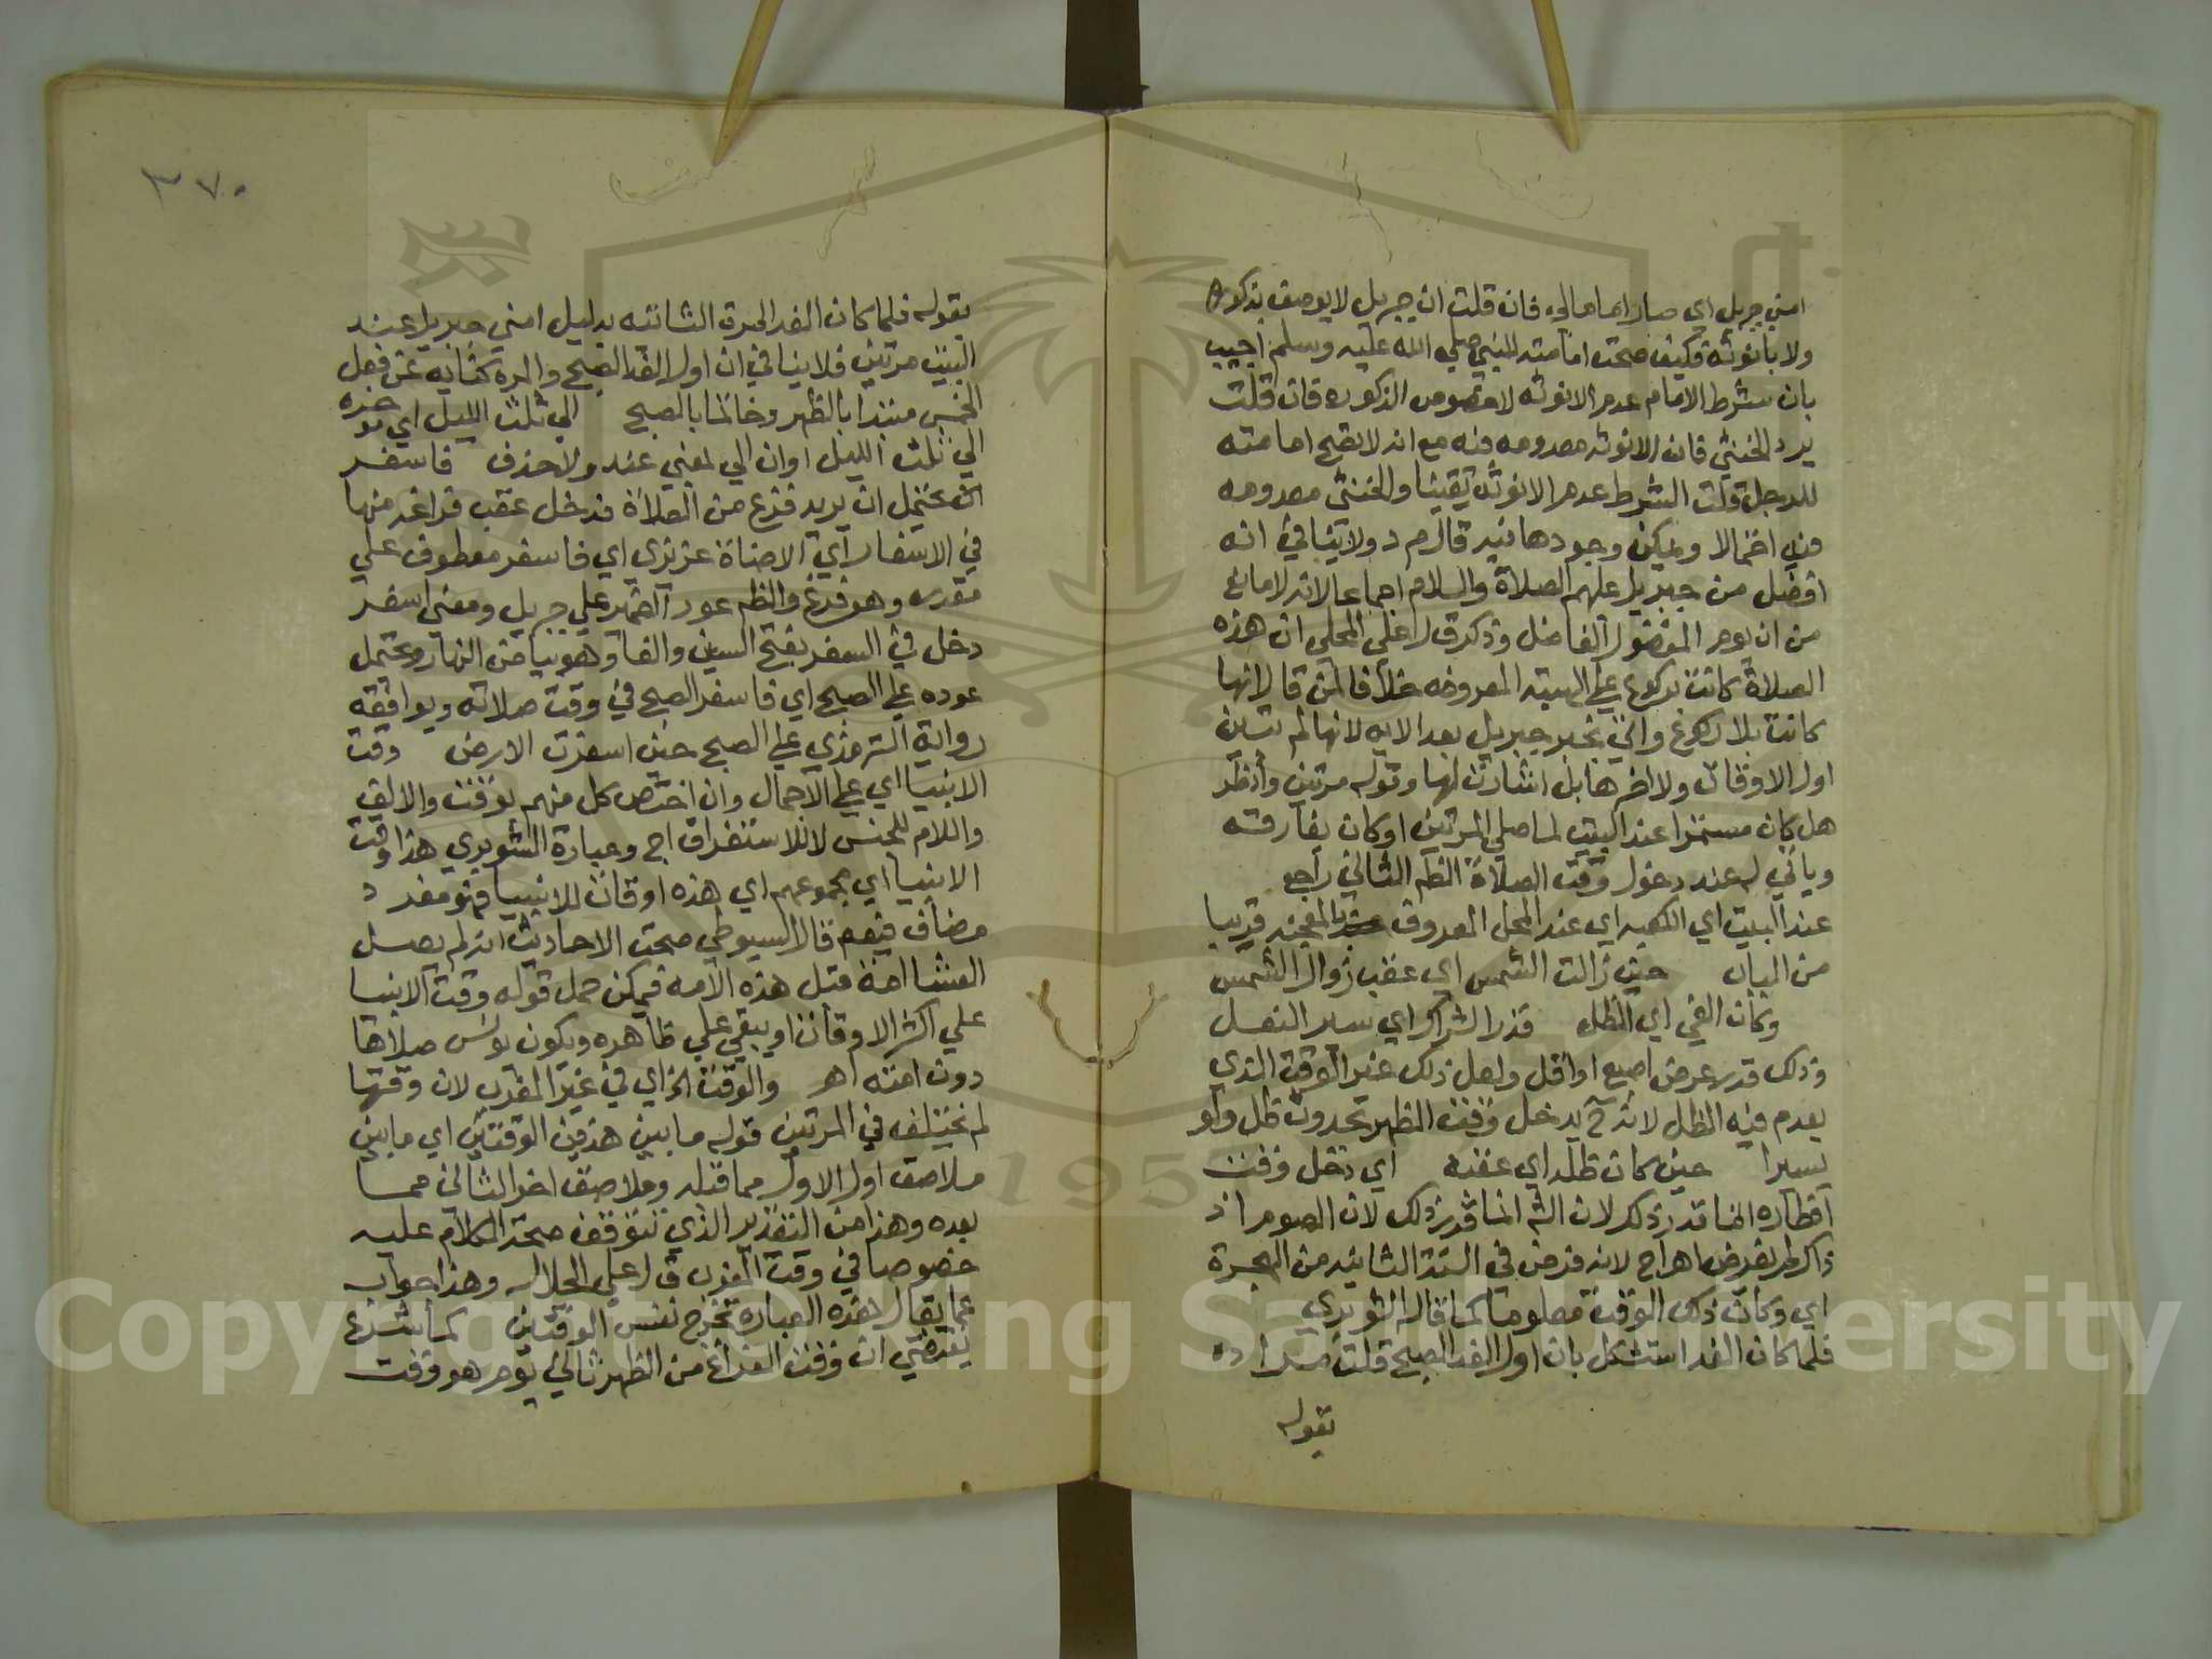 امني جبريل اي صار اماما لي فان قلت ان جبريل لا يوصف بذكورة
ولا بانوثة فكيف صحت امامته للنبي صلي الله عليه وسلم اجيب
بان شرط الامام عدم الانوثه لا خصوص الذكوره فان قلت
يرد الخنثي فان الانوثه معدومه فيه مع انه لا تصح امامته
للرجل قلت الشرط عدم الانوثه يقينا والخنثي معدومه
فيه احتمالا ويمكن وجودها فيه قال م د ولا ينافي انه
افضل من جبريل عليهم الصلاة والسلام اجماعا لانه لا مانع
من ان يوم المفضول الفاضل وذكر ق ل علي المحلي ان هذه
الصلاة كانت بركوع علي الهيئه المعروفه خلافا لمن قال انها
كانت بلا ركوع واتي بخبر جبريل بعد الايه لانها لم تبين
اول الاوقات ولا اخرها بل اشارت لها وقوله مرتين وانظر
هل كان مستمرا عند البيت لما صلي المرتين او كان يفارقه
وياتي له عند دخول وقت الصلاة الظه الثاني راجع
عند البيت اي الكعبه اي عند المحل المعروف بالمعجنه قريبا
من الباب حين زالت الشمس اي عقب زوال الشمس
وكان الفي اي الظل قدر الشراك اي سير النعل
وذلك قدر عرض اصبع او اقل ولعل ذلك غير الوقت الذي
يعدم فيه الظل لانه ح يدخل وقت الظهر بحدوث ظل ولو
يسيرا حين كان ظله اي عقبه اي دخل وقت
افطاره انما قدر ذلك لان الش انما قدر ذلك لان الصوم اذ
ذاك لم يفرض اهـ اج لانه فرض في السنة الثانيه من الهجرة
اي وكان ذلك الوقت معلوما كما قاله الشوبري
فلما كان الغد استشكل بان اول الغد الصبح قلت مراده
بقوله
٣٧٠
بقوله فلما كان الغد المرة الثانيه بدليل امني جبريل عند
البيت مرتين فلا ينافي ان اول الغد الصبح والمره كنايه عن فعل
الخمس مبتدا بالظهر وخاتما بالصبح الي ثلث الليل اي موخره
الي ثلث الليل او ان الي بمعني عند ولا حذف فاسفر
الخ يحتمل ان يريد فرغ من الصلاة فدخل عقب فراغه منها
في الاسفار اي الاضاة عزيزي اي فاسفر معطوف علي
مقدر وهو فرغ والظه عود الضمير علي جبريل ومعني اسفر
دخل في السفر بفتح السين والفا وهو بياض النهار ويحتمل
عوده علي الصبح اي فاسفر الصبح في وقت صلاته ويوافقه
رواية الترمذي علي الصبح حين اسفرت الارض وقت
الانبيا اي علي الاجمال وان اختص كل منهم بوقت والالف
واللام للجنس لا للاستغراق اج وعبارة الشوبري هذا وقت
الانبيا اي مجموعهم اي هذه اوقات للانبيا فهو مفرد
مضاف فيعم قال السيوطي صحت الاحاديث انه لم يصل
العشا امة قبل هذه الامه فيمكن حمل قوله وقت الانبيا
علي اكثر الاوقات او يبقي علي ظاهره ويكون يونس صلاها
دون امته اهـ والوقت الخ اي في غير المغرب لان وقتها
لم يختلف في المرتين قوله ما بين هذين الوقتين اي ما بين
ملاصق اول الاول مما قبله وملاصق اخر الثاني مما
بعده وهذا من التقدير الذي تتوقف صحة الكلام عليه
خصوصا في وقت المغرب ق ل علي الجلال وهذا جواب
عما يقال هذه العباره تخرج نفس الوقتين كما شرع
يقتضي ان وقت الفراغ من الظهر ثاني يوم هو وقت